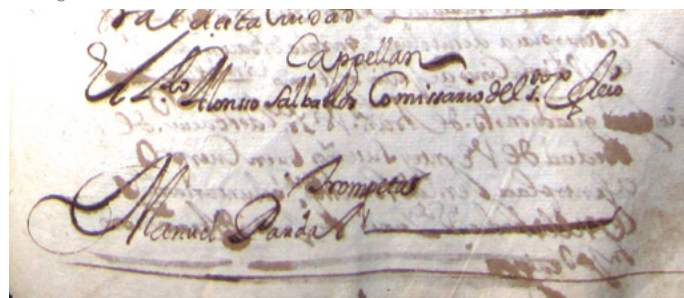 ral desta Ciudad
Cappellan
El L.do Alonsso Salbador Comissario del S.to
Trompetas
Manuel Pardal